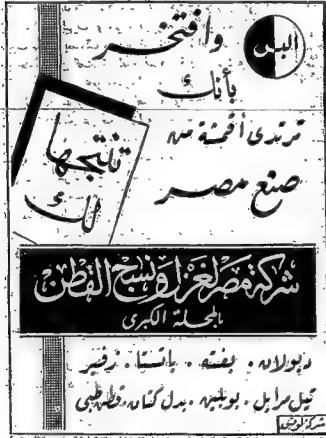 البس
وافتخر
بأنك
ترتدى أقمشة من
صنع مصر
تنتجها
لك
شركة مصر لغزل ونسج القطن
بالمحلة الكبرى
ديولان . بفته . باتستا . زفير
تيل مرايل . بوبلين . بدل كتان . قطن طبى